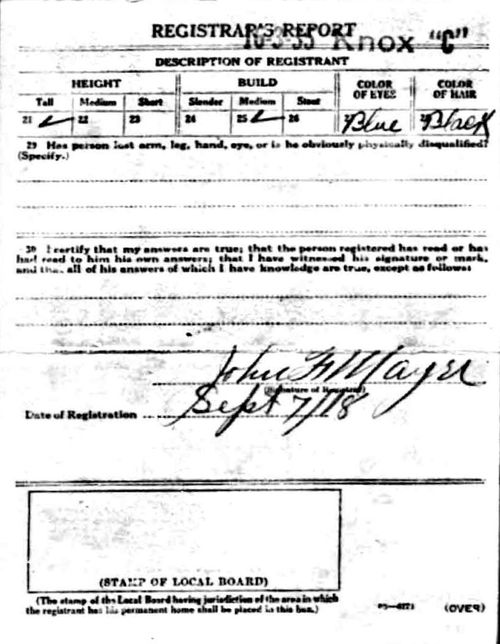 REGISTRAR'S REPORT
10-3-55 Knox "C"
DESCRIPTION OF REGISTRANT
HEIGHT BUILD COLOR OF EYES COLOR OF HAIR
Tall Medium Short Slender Medium Stout
21 22 23 24 25 26 Blue Black
29 Has person lost arm, leg, hand, eye, or is he obviously physically disqualified?
(Specify.)
30 I certify that my answers are true; that the person registered has read or has
had read to him his own answers; that I have witnessed his signature or mark,
and that all of his answers of which I have knowledge are true, except as follows:
John F Mayer
(Signature of Registrar)
Date of Registration Sept 7/18
(STAMP OF LOCAL BOARD)
(The stamp of the Local Board having jurisdiction of the area in which
the registrant has his permanent home shall be placed in this box.)
(OVER)